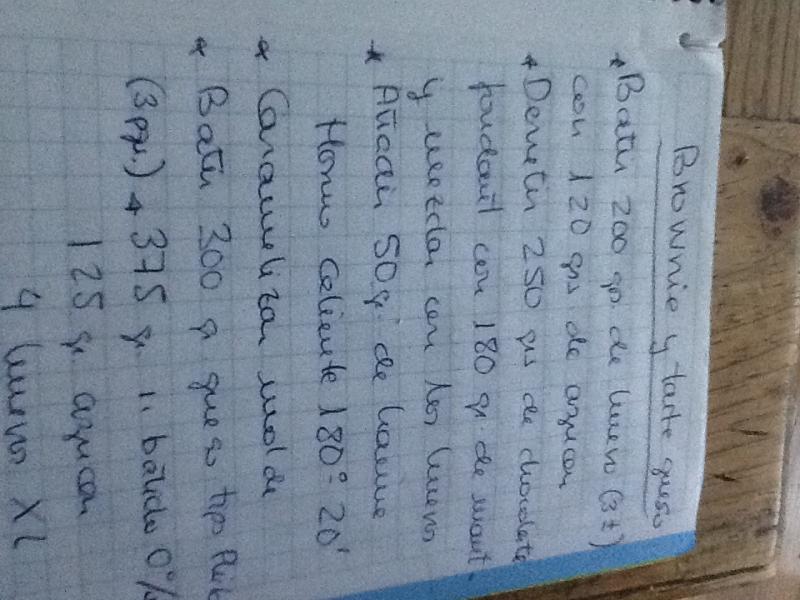 Brownie y tarta queso
* Batir 200 gr. de huevo (3 ±)
con 120 grs de azúcar
* Derretir 250 grs de chocolate
fondant con 180 gr. de mant.
y mezclar con los huevos
* Añadir 50 gr. de harina
Horno caliente 180º 20'
* Caramelizar molde
* Batir 300 gr queso tipo
375 gr. batido 0%
125 gr. azúcar
4 huevos XL